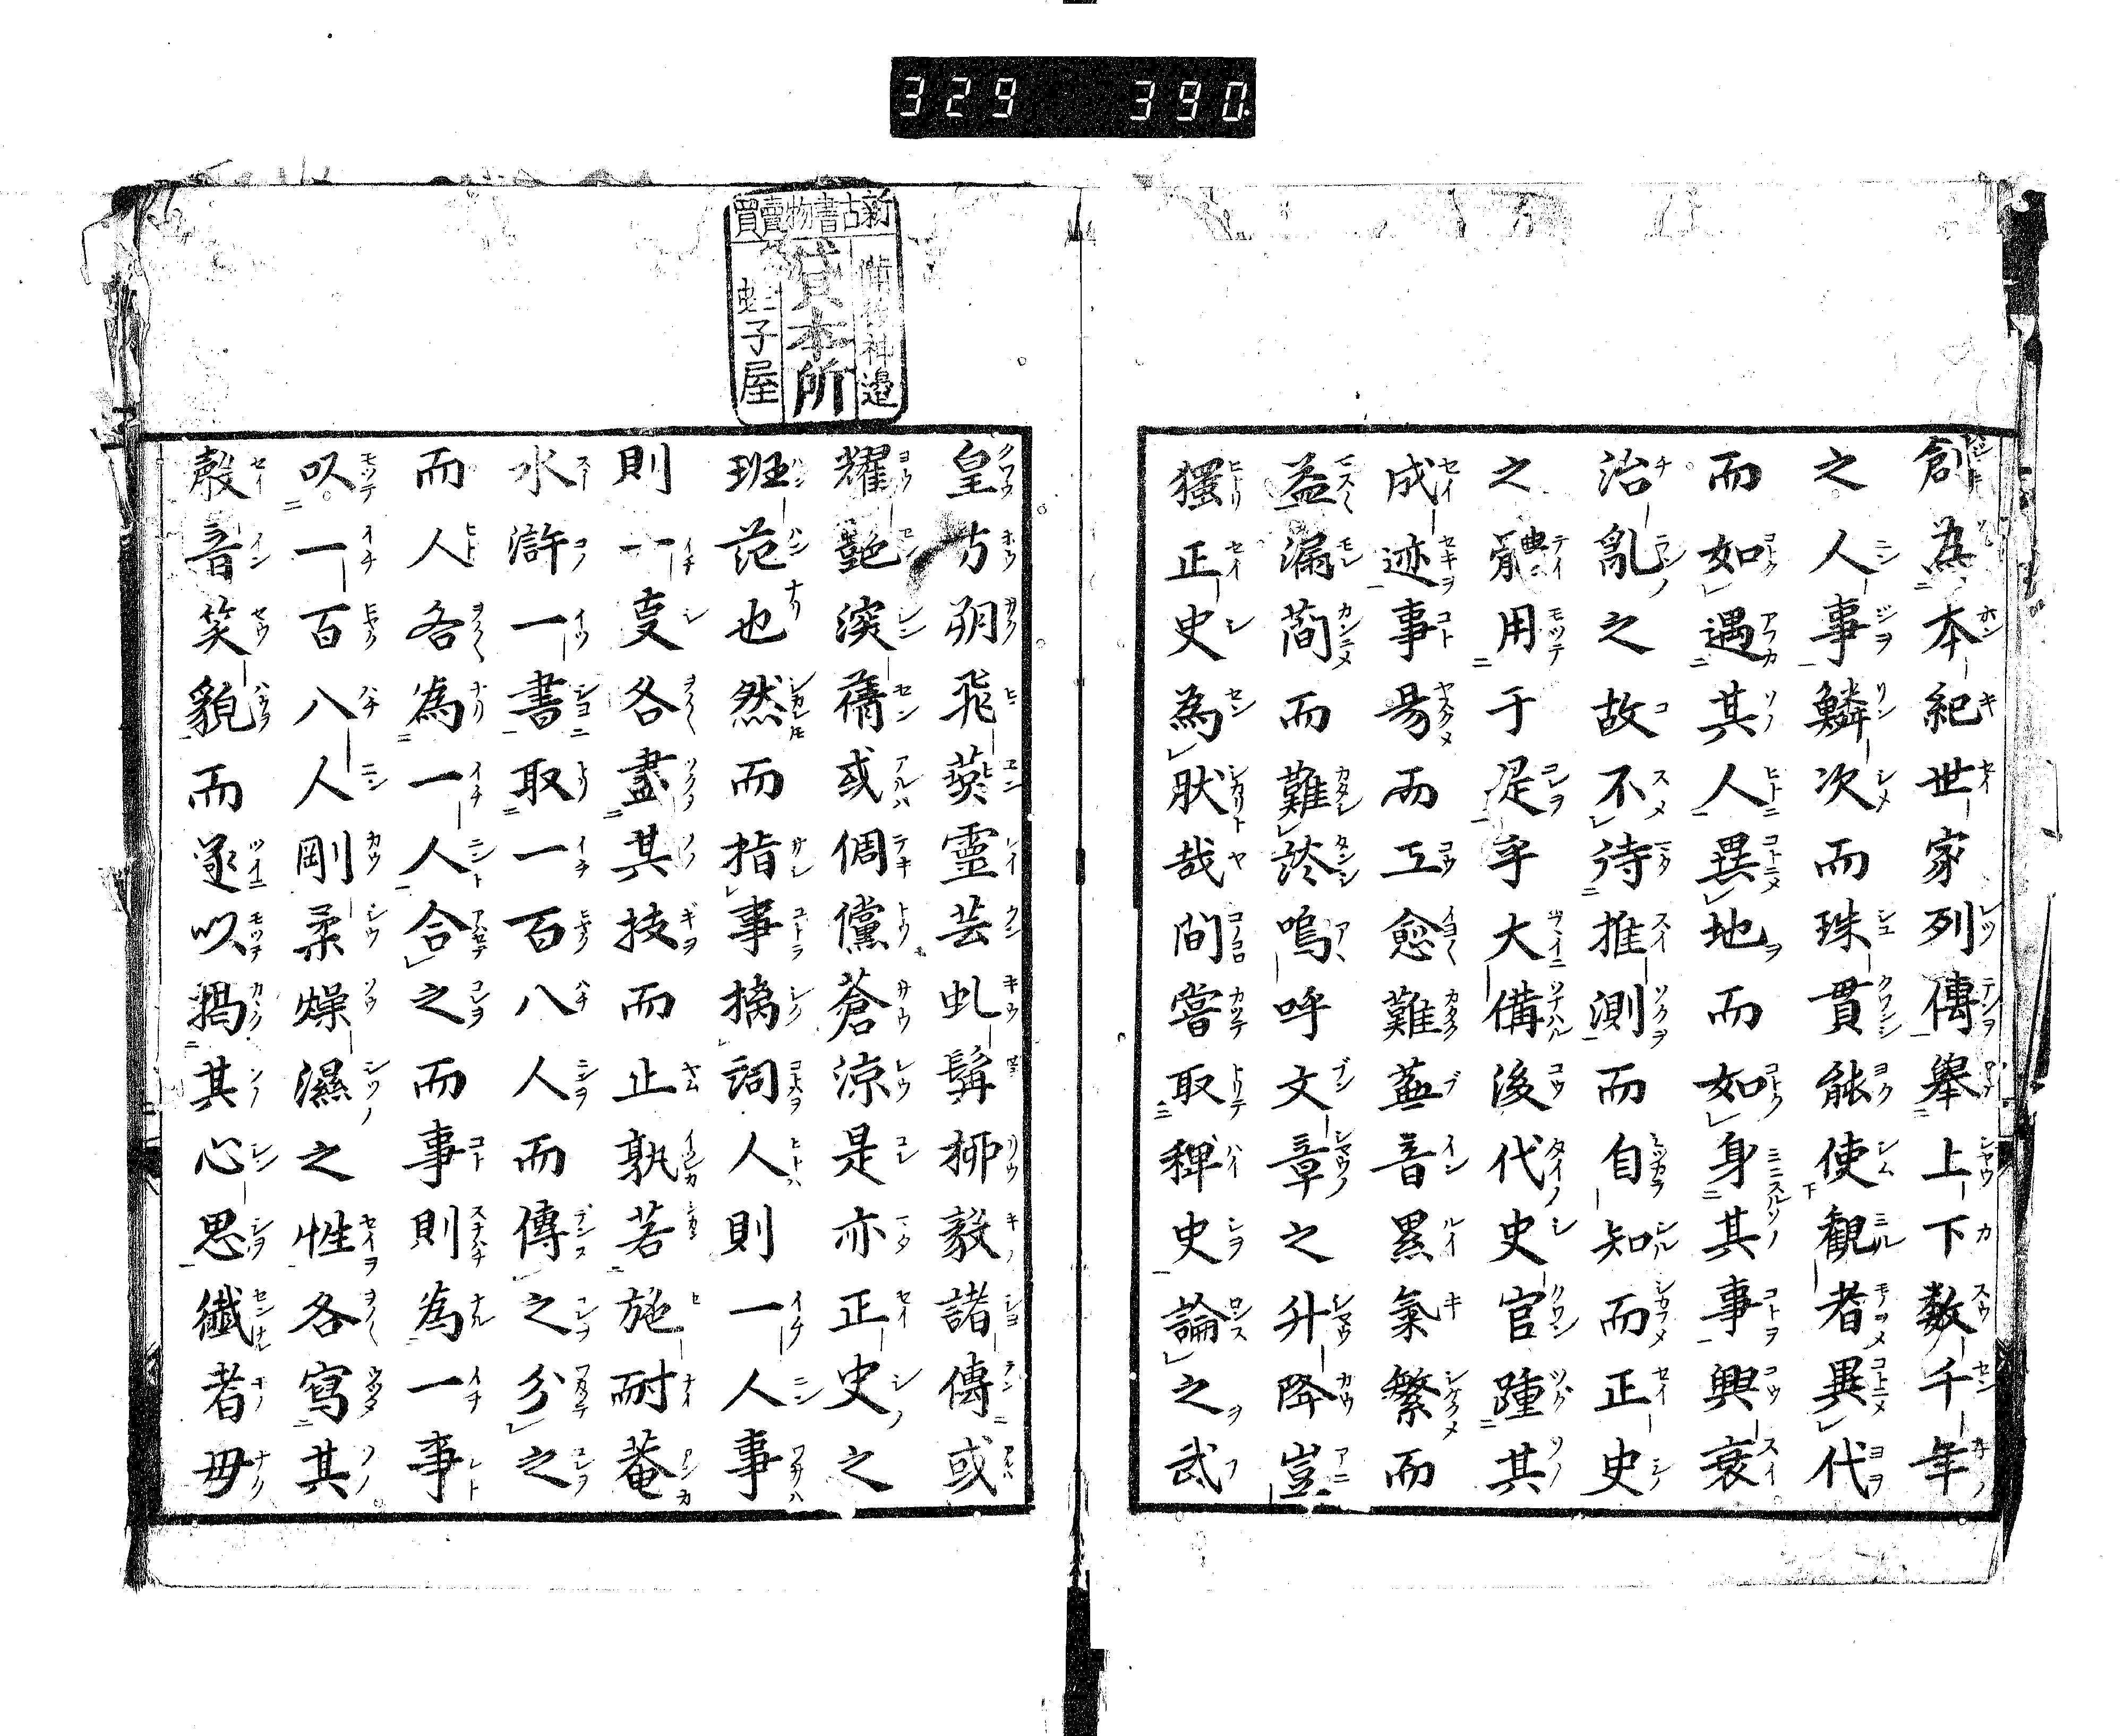 329 390
創為本紀世家列傳舉上下数千年
之人事鱗次而珠貫能使観者異代
而如遇其人異地而如身其事興衰
治亂之故不待推測而自知而正史
之體用于是乎大備後代史官踵其
成迹事易而工愈難蕪音累氣繁而
益漏蕳而難
嗚呼文章之升降豈
獨正史為肰哉間嘗取稗史論之武
新古書物賣買
貸本所
備後神邉
蛭子屋
皇方朔飛燕靈芸虬髯柳毅諸傳或
耀艷
或倜儻蒼涼是亦正史之
班范也然而指事摛詞人則一人事
則一事各盡其技而止孰若施耐菴
水滸一書取一百八人而傳之分之
而人各為一人合之而事則為一事
以一百八人剛柔燥濕之性各寫其
聲音笑貌而遂以揭其心思纎者毋